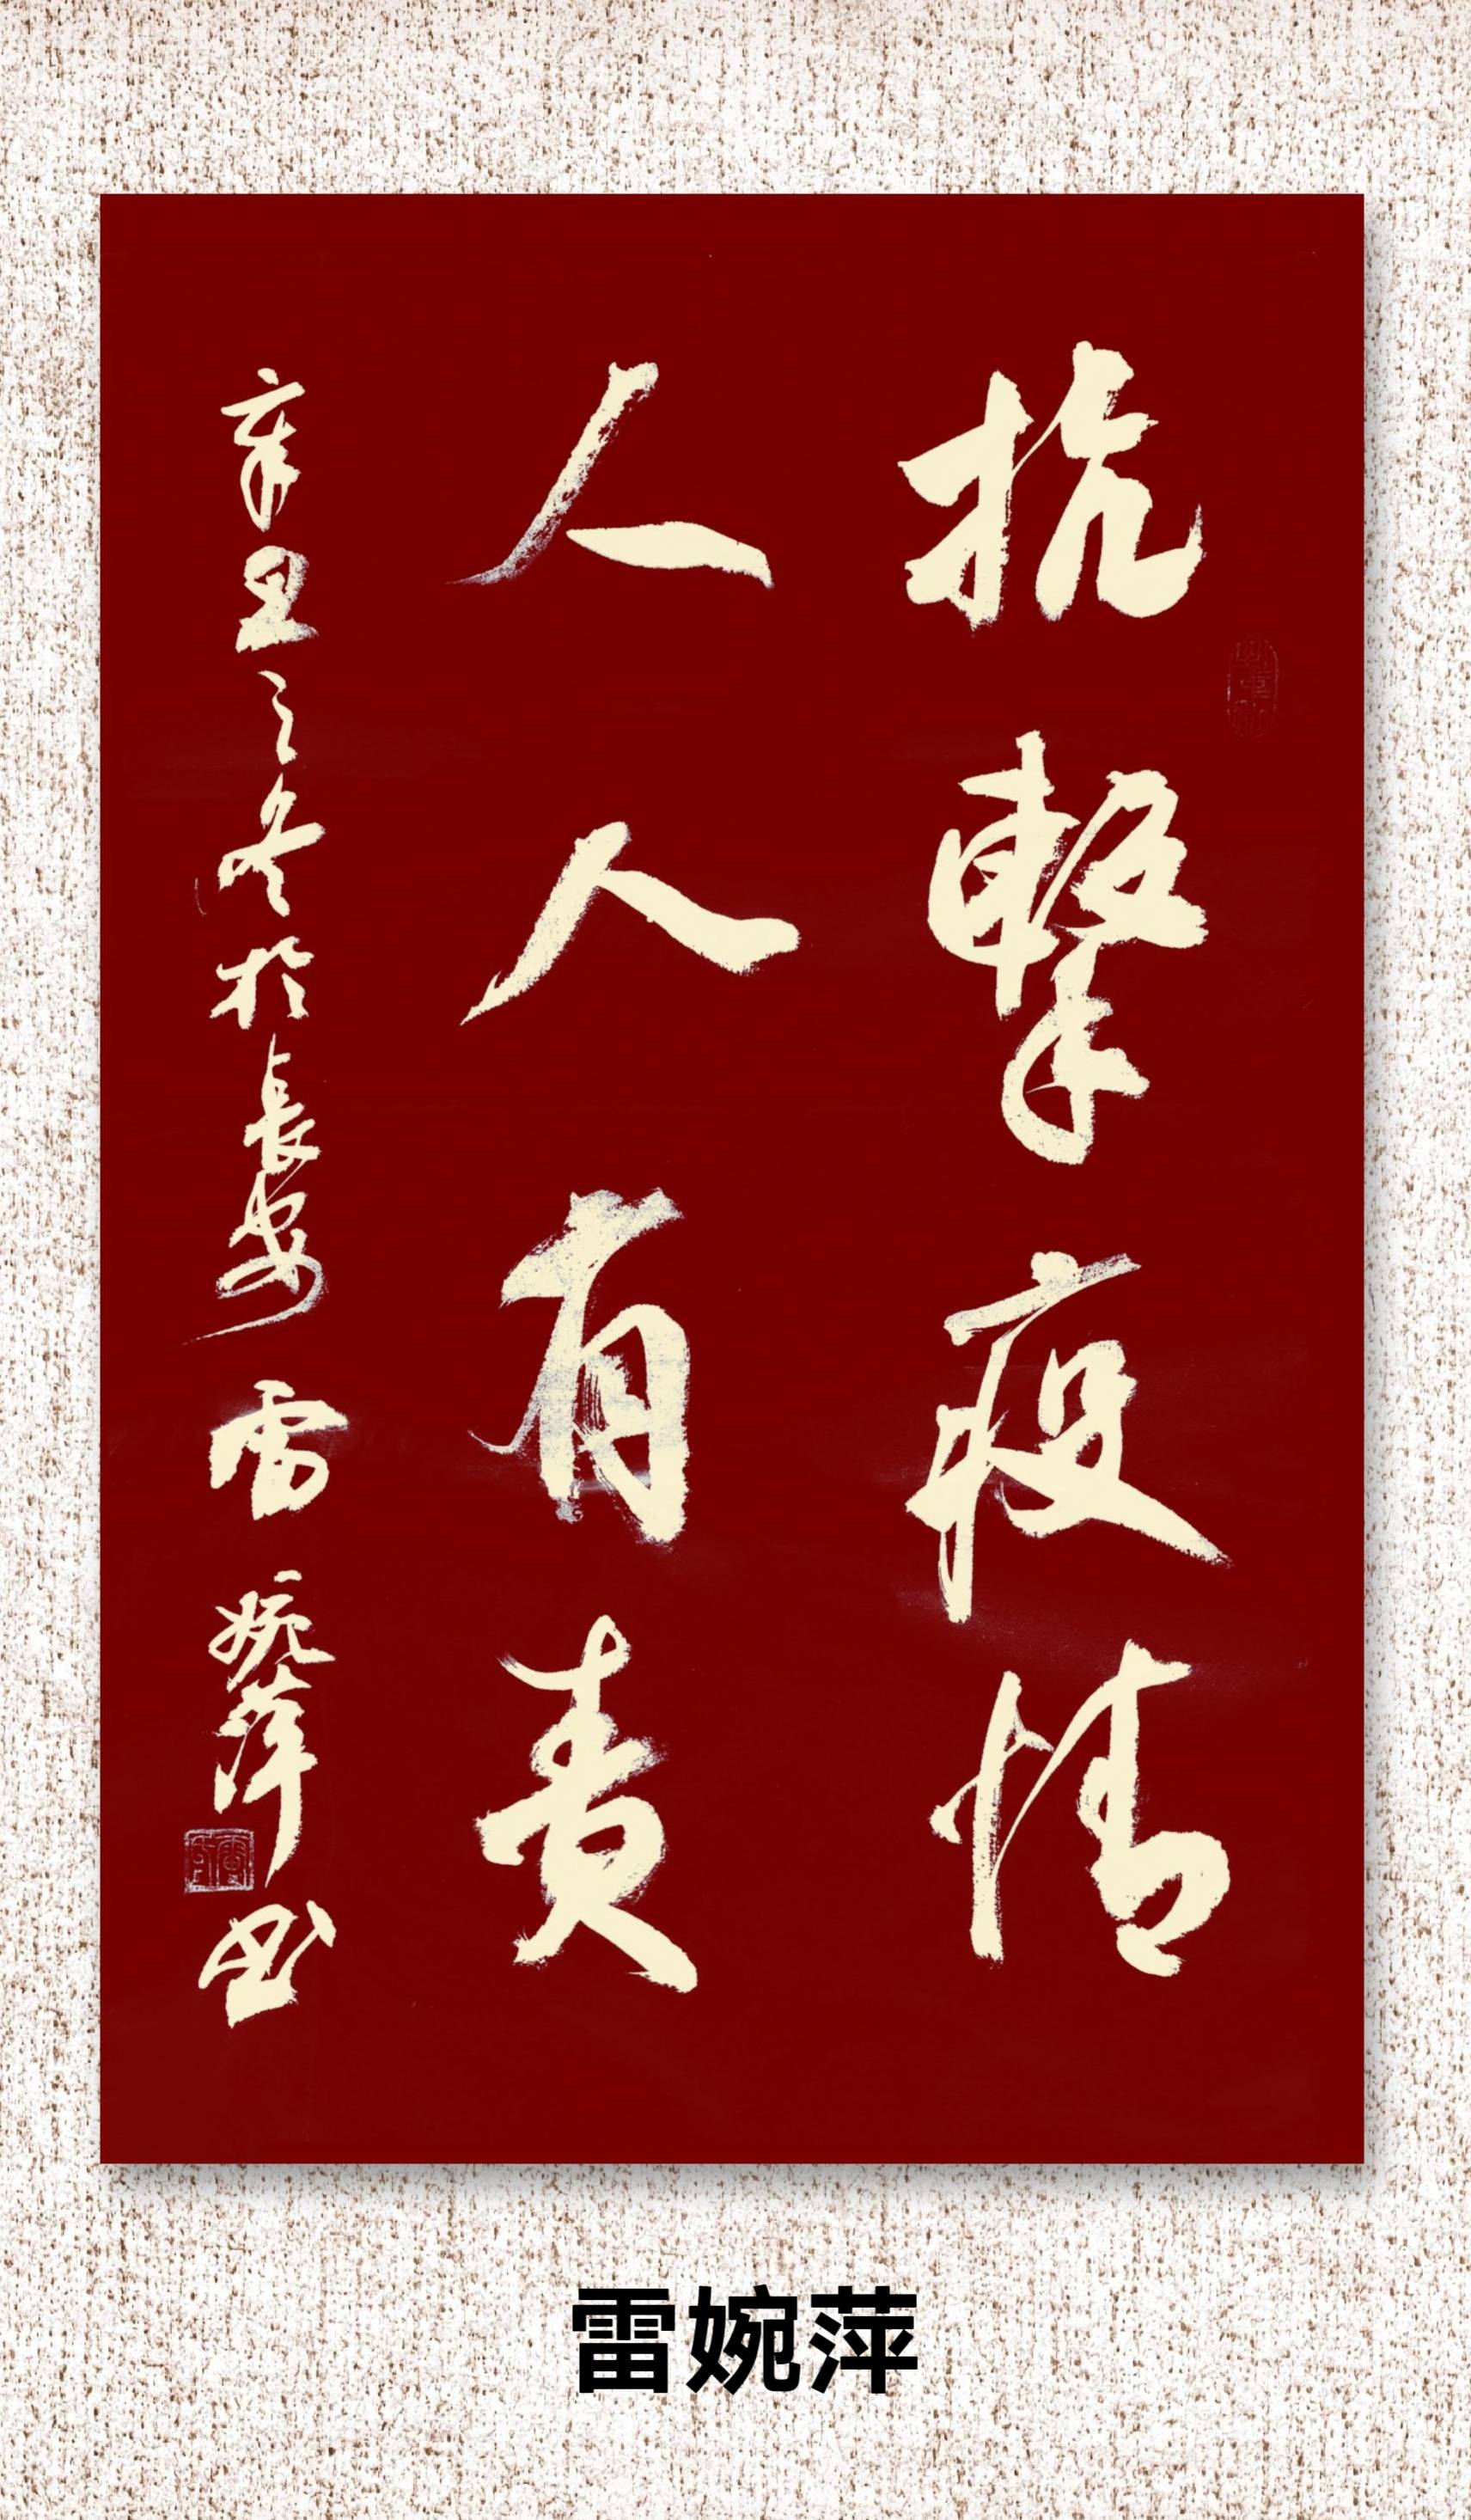 抗擊疫情
人人有责
辛丑之冬於長安雷婉萍书
雷婉萍